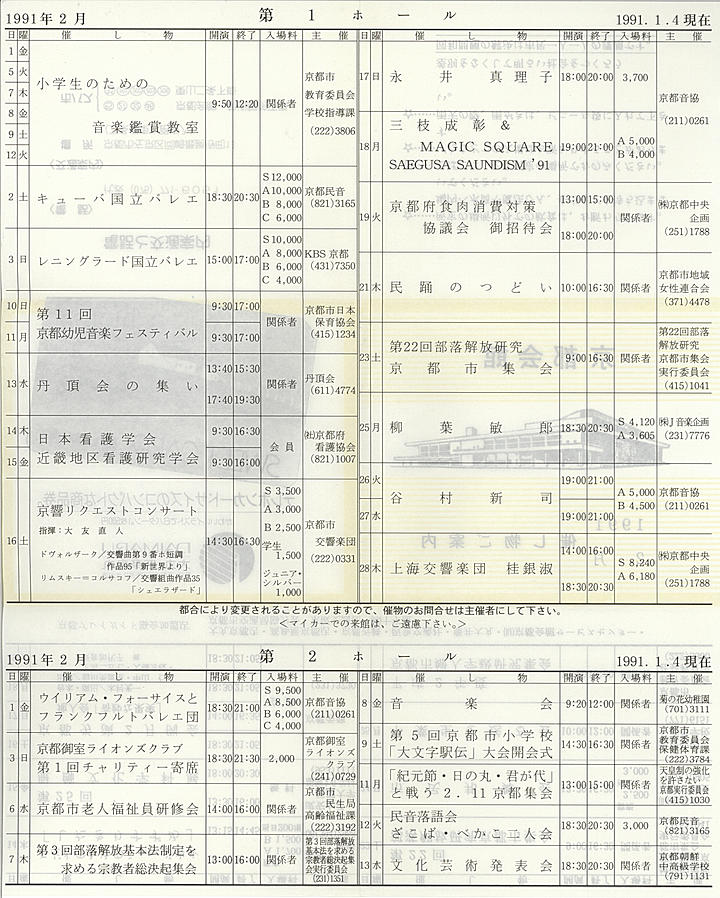 1991年2月 第1ホール 1991.1.4現在
日 曜 催し物 開演 終了 入場料 主催
1 金
5 火
7 木
8 金
9 土
12 火
小学生のための
音楽鑑賞教室
9:50 12:20 関係者
京都市
教育委員会
学校指導課
(222)3806
2 土 キューバ国立バレエ 18:30 20:30
S 12,000
A 10,000
B 8,000
C 6,000
京都民音
(821)3165
3 日 レニングラード国立バレエ 15:00 17:00
S 10,000
A 8,000
B 6,000
C 4,000
KBS京都
(431)7350
10 日 9:30 17:00
11 月 9:30 17:00
第11回
京都幼児音楽フェスティバル
関係者
京都市日本
保育協会
(415)1234
13 水 丹頂会の集い
13:40 15:30
17:40 19:30
関係者
丹頂会
(611)4774
14 木 9:30 16:30
15 金 9:30 16:00
日本看護学会
近畿地区看護研究学会
会員
㈳京都府
看護協会
(821)1007
16 土 京響リクエストコンサート
指揮:大友直人
ドヴォルザーク／交響曲第9番ホ短調
作品95「新世界より」
リムスキー=コルサコフ／交響組曲作品35
「シェエラザード」
14:30 16:30
S 3,500
A 3,000
B 2,500
学生
1,500
ジュニア・
シルバー
1,000
京都市
交響楽団
(222)0331
日 曜 催し物 開演 終了 入場料 主催
17 日 永井真理子 18:00 20:00 3,700
京都音協
(211)0261
18 月 三枝成彰&
MAGIC SQUARE
SAEGUSA SAUNDISM '91
19:00 21:00
A 5,000
B 4,000
19 火 京都府食肉消費対策
協議会 御招待会
13:00 15:00
18:00 20:00
関係者
㈱京都中央
企画
(251)1788
21 木 民踊のつどい 10:00 16:30 関係者
京都市地域
女性連合会
(371)4478
23 土 第22回部落解放研究
京都市集会
9:00 16:30 関係者
第22回部落
解放研究
京都市集会
実行委員会
(415)1041
25 月 柳葉敏郎 18:30 20:30
S 4,120
A 3,605
㈱J音楽企画
(231)7776
26 火 19:00 21:00
27 水 19:00 21:00
谷村新司
A 5,000
B 4,500
京都音協
(211)0261
28 木 上海交響楽団 桂銀淑
14:00 16:00
18:30 20:30
S 8,240
A 6,180
㈱京都中央
企画
(251)1788
都合により変更されることがありますので、催物のお問合せは主催者にして下さい。
<マイカーでの来館は、ご遠慮下さい。>
1991年2月 第2ホール 1991.1.4現在
日 曜 催し物 開演 終了 入場料 主催
1 金 ウイリアム・フォーサイスと
フランクフルトバレエ団
18:30 21:00
S 9,500
A 8,500
B 6,000
C 4,000
京都音協
(211)0261
3 日 京都御室ライオンズクラブ
第1回チャリティー寄席
18:30 21:30 2,000
京都御室
ライオンズ
クラブ
(241)0729
6 水 京都市老人福祉員研修会 14:00 16:00 関係者
京都市
民生局
高齢福祉課
(222)3192
7 木 第3回部落解放基本法制定を
求める宗教者総決起集会
13:00 16:00 関係者
第3回部落解放
基本法を求める
宗教者総決起集
会実行委員会
(231)1351
日 曜 催し物 開演 終了 入場料 主催
8 金 音楽会 9:20 12:00 関係者
菊の花幼稚園
(701)3111
9 土 第5回京都市小学校
「大文字駅伝」大会開会式
14:30 16:30 関係者
京都市
教育委員会
保健体育課
(222)3784
11 月 「紀元節・日の丸・君が代」
と戦う2.11京都集会
13:00 15:00 関係者
天皇制の強化
を許さない
京都実行委員会
(415)1030
12 火 民音落語会
ざこば・べかこ二人会
18:30 20:30 3,000
京都民音
(821)3165
13 水 文化芸術発表会 18:30 20:30 関係者
京都朝鮮
中高級学校
(791)1131